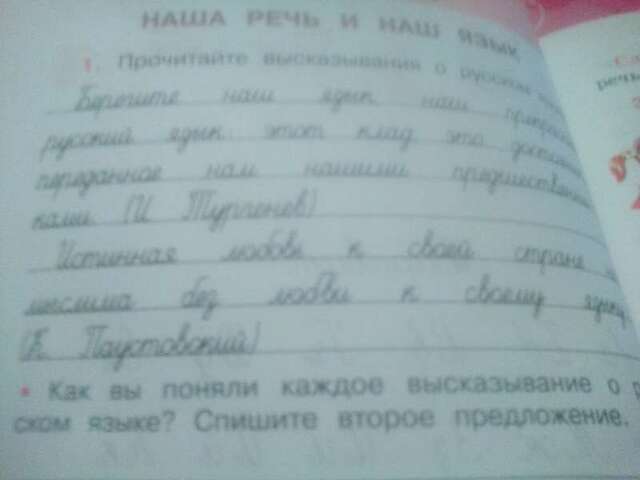 НАША РЕЧЬ И НАШ ЯЗЫК
1. Прочитайте высказывания о русском
Берегите наш язык наш прекрасн
русский язык этот клад это достоян
переданное нам нашими предшественни
ками (И Тургенев)
Истинная любовь к своей стране
мыслима без любви к своему языку
(К Паустовский)
• Как вы поняли каждое высказывание о р
ском языке? Спишите второе предложение.